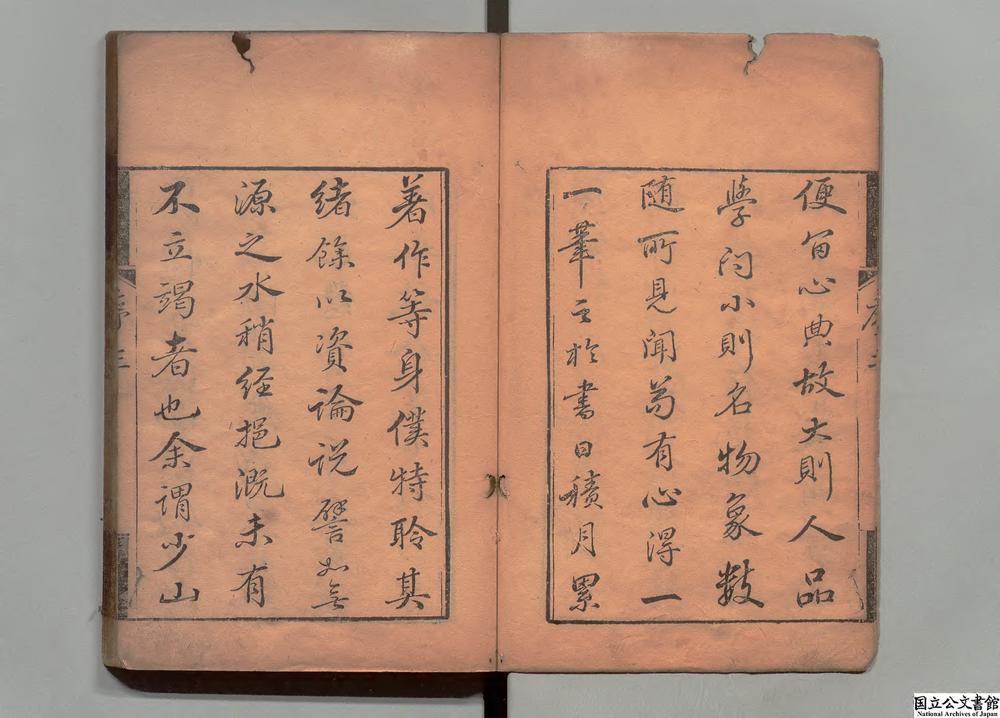 便留心典故大則人品
學问小則名物象数
随所見聞苟有心得一
一筆之於書日積月累
著作等身僕特聆其
緒餘以資論说譬如無
源之水稍经挹溉未有
不立竭者也余謂少山
序三
国立公文書館
National Archives of Japan